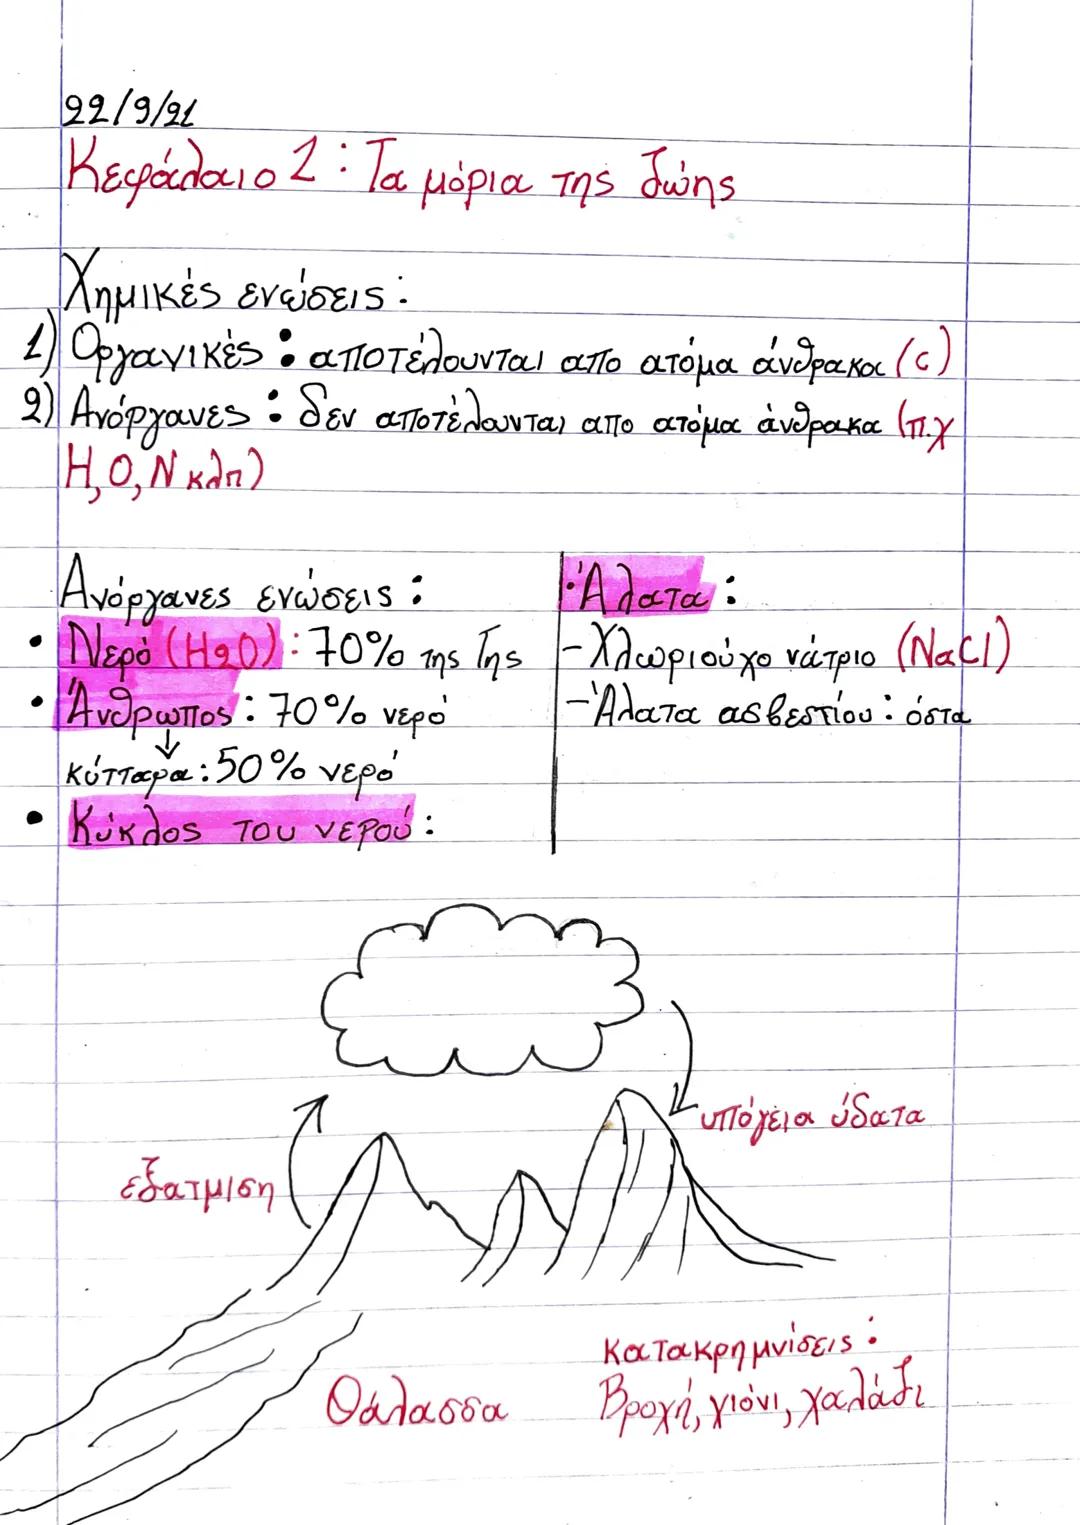 22/9/21
Κεφάλαιο 1: Τα μόρια της ζωής
Χημικές ενώσεις:
1) Οργανικές: αποτέλουνται απο ατόμα άνθρακα (C)
2) Ανόργανες: δεν αποτέλουνται απο ατόμα άνθρακα (π.χ
H, O, N κλπ)
Ανόργανες ενώσεις:
• Νερό (H2O): 70% της Γης
• Άνθρωπος: 70% νερό
↓
κύτταρα: 50% νερό
• Κύκλος του νερού:
• Άλατα:
- Χλωριούχο νάτριο (NaCl)
- Άλατα ασβεστίου: όστα
υπόγεια ύδατα
εξατμιση
κατακρημνίσεις:
Θάλασσα
Βροχή, χιόνι, χαλάζι